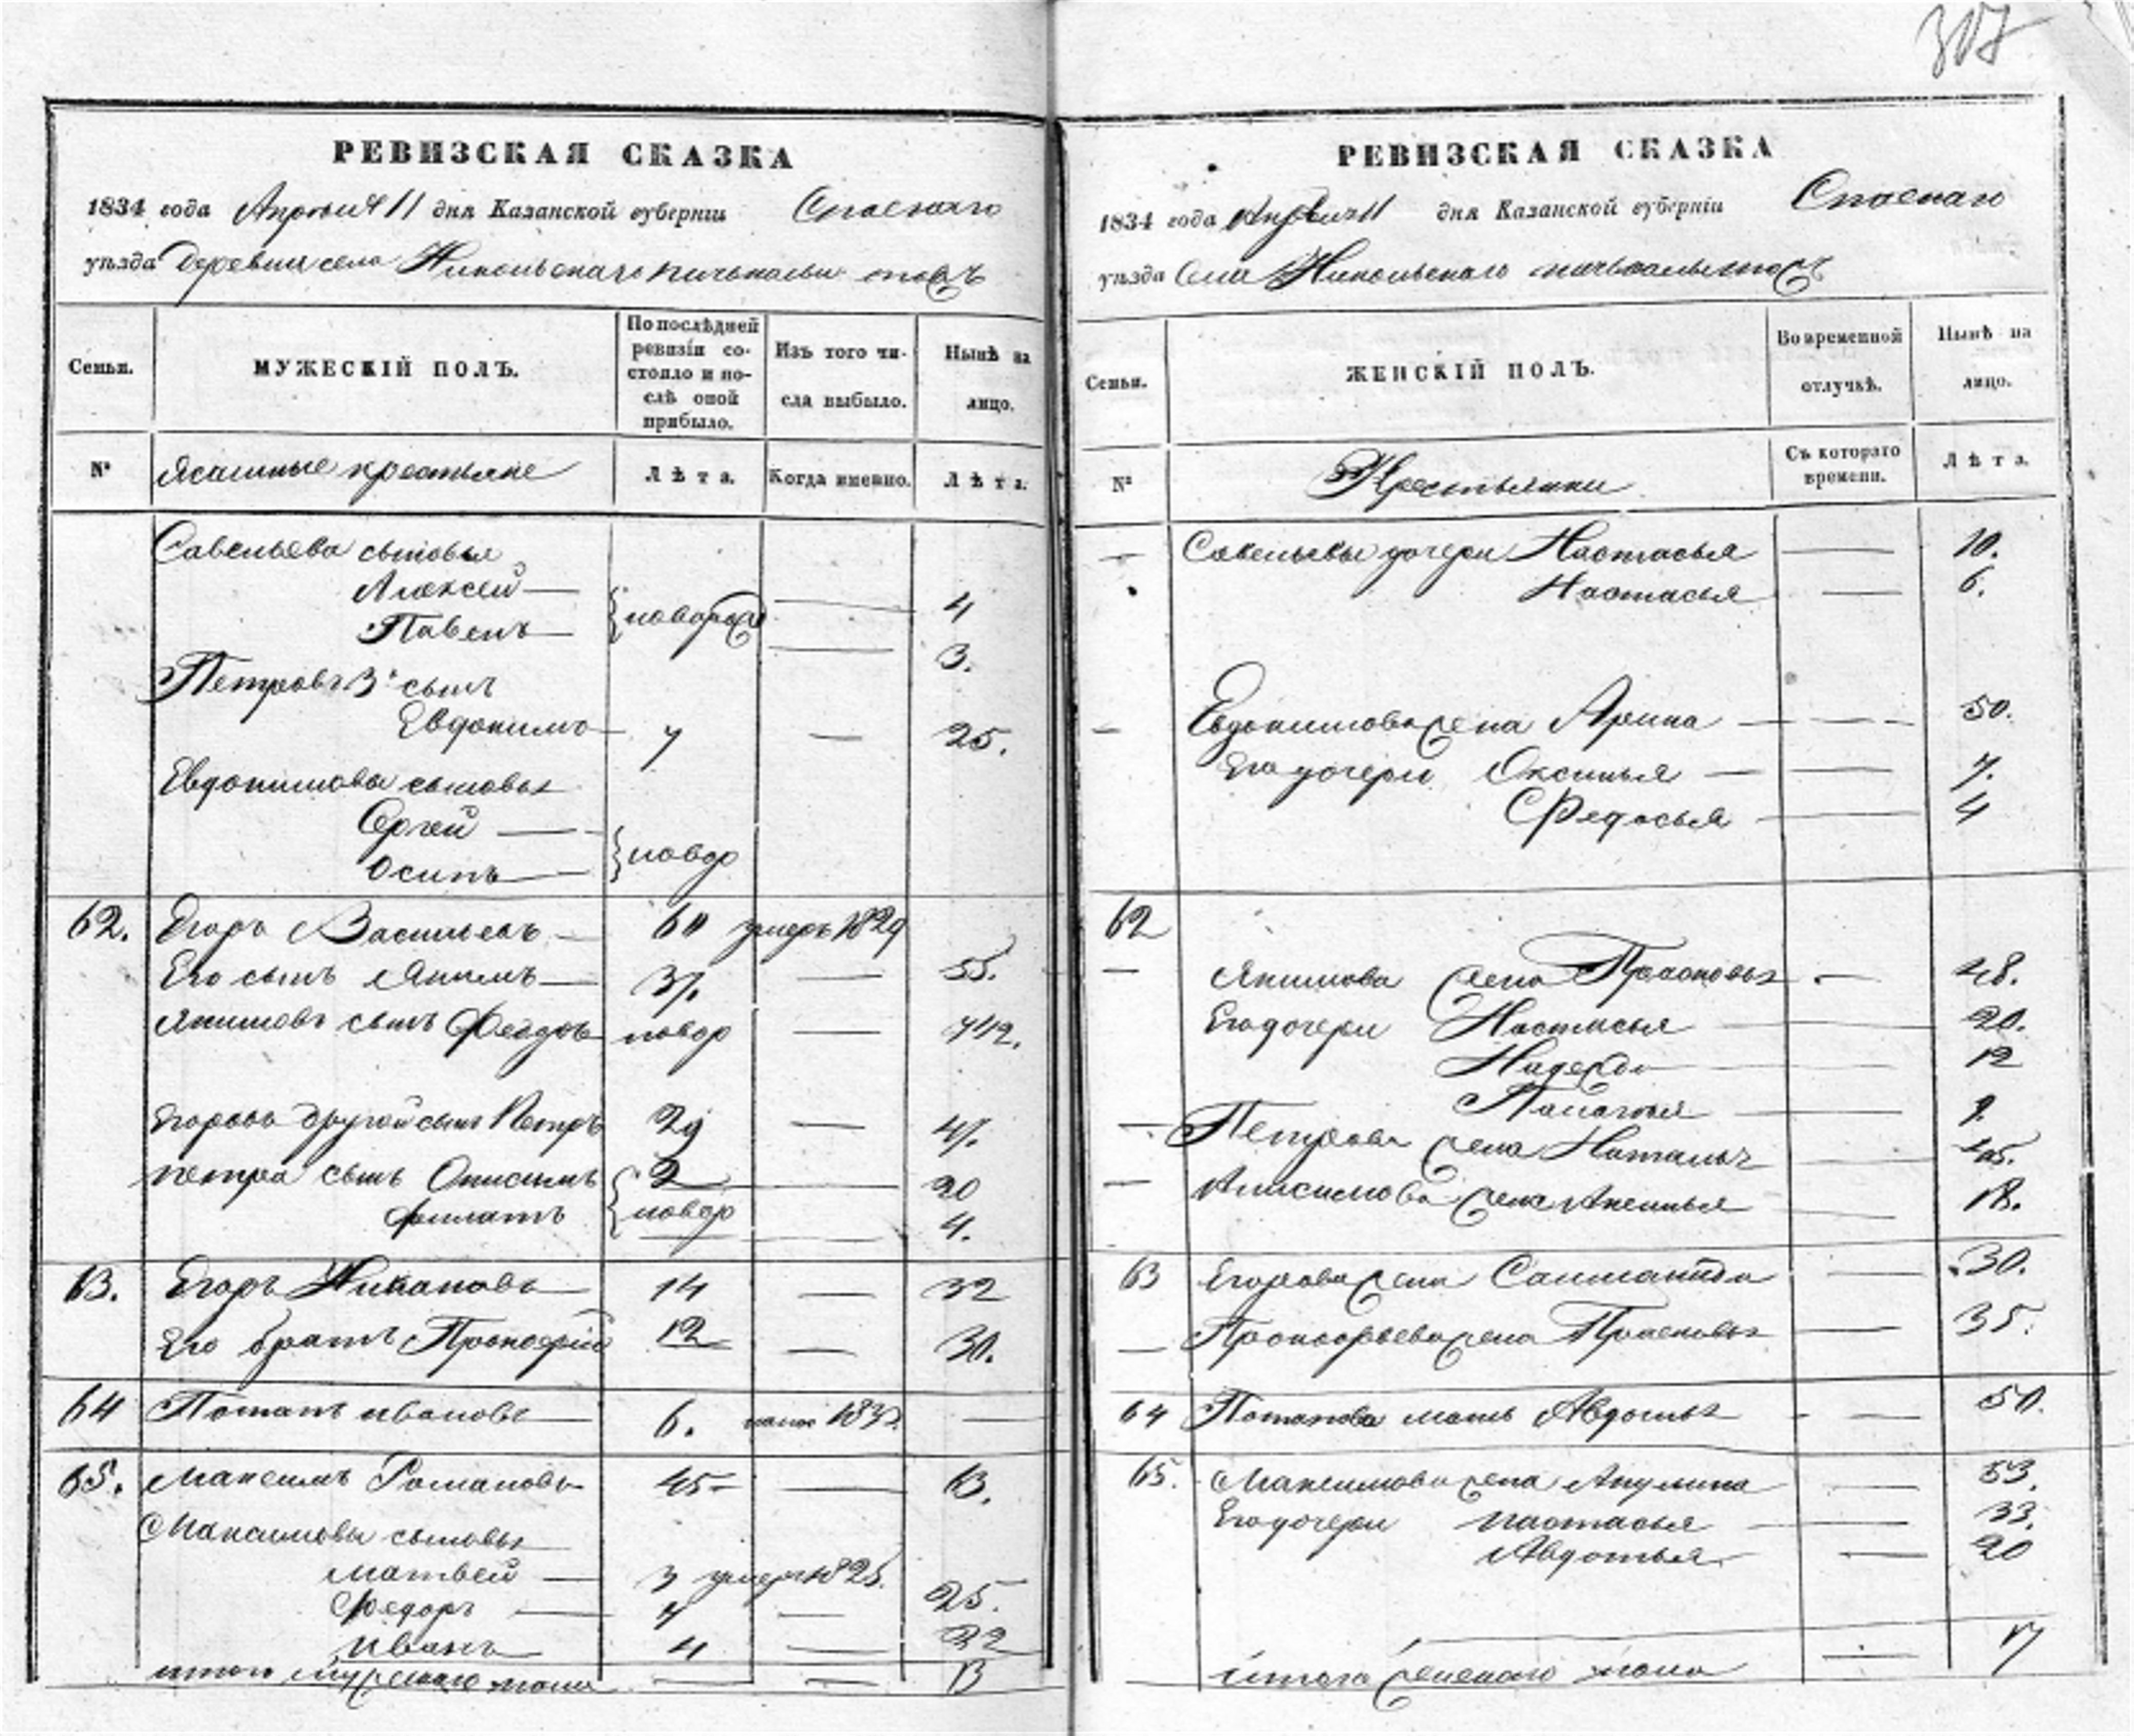 307
РЕВИЗСКАЯ СКАЗКА
1834 года Апреля 11 дня Казанской губерніи Спаскаго
уѣзда деревни села Никольскаго
Семьи.
МУЖЕСКІЙ ПОЛЪ.
По послѣдней ревизіи состояло и послѣ оной прибыло.
Изъ того числа выбыло.
Нынѣ на лицо.
№
Ясашные крестьяне
Лѣта.
Когда именно.
Лѣта.
Савельева сыновья
Алексей — — 4
Павелъ — — 3.
Петровъ 3й сынъ
Евдокимъ — 7 — 25.
Евдокимовы сыновья
Сергей —
Осипъ —
62. Егоръ Васильевъ — 60 умеръ 1829
Его сынъ Якимъ — 37. — 55.
Якимовъ сынъ Федоръ — новор — 12.
Егоровъ другой сынъ Петръ 29 — 47.
Петра сынъ Онисимъ 2 — 20
Филатъ новор — 4.
63. Егоръ Никановъ — 14 — 32
Его братъ Прокофий 12 — 30.
64 Потапъ Ивановъ — 6. 1832 —
65. Максимъ Романовъ 45 — 63.
Максимовы сыновья
Матвей — 3 умеръ 1825.
Федоръ — 7 — 25.
Иванъ 4 — 22
итого мужескаго пола — — 13
РЕВИЗСКАЯ СКАЗКА
1834 года Апреля 11 дня Казанской губерніи Спаскаго
уѣзда Села Никольскаго
Семьи.
ЖЕНСКІЙ ПОЛЪ.
Во временной отлучкѣ.
Нынѣ на лицо.
№
Крестьянки
Съ котораго времени.
Лѣта.
— Савельевы дочери Настасья — 10.
Настасья — 6.
— Евдокимова жена Арина — 50.
Его дочери Оксинья — 7.
Федосья — 4
62
— Якимова жена Прасковья — 48.
Его дочери Настасья — 20.
Надежда — 12
Палагья — 9.
— Петрова жена Наталья — 45.
— Анисимова жена Аксинья — 18.
63 Егорова жена — 30.
— Прокофьева жена Прасковья — 35.
64 Потапова мать Авдотья — 50.
65. Максимова жена Акулина — 53.
Его дочери Настасья — 33.
Авдотья — 20
Итого женскаго пола — 17